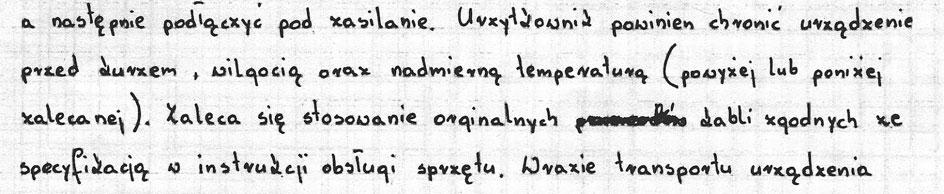 a następnie podłączyć pod zasilanie. Urzytkownik powinien chronić urządzenie
przed kurzem, wilgocią oraz nadmierną temperaturą (powyżej lub poniżej
zalecanej). Zaleca się stosowanie orginalnych kabli zgodnych ze
specyfikacją w instrukcji obsługi sprzętu. Wrazie transportu urządzenia